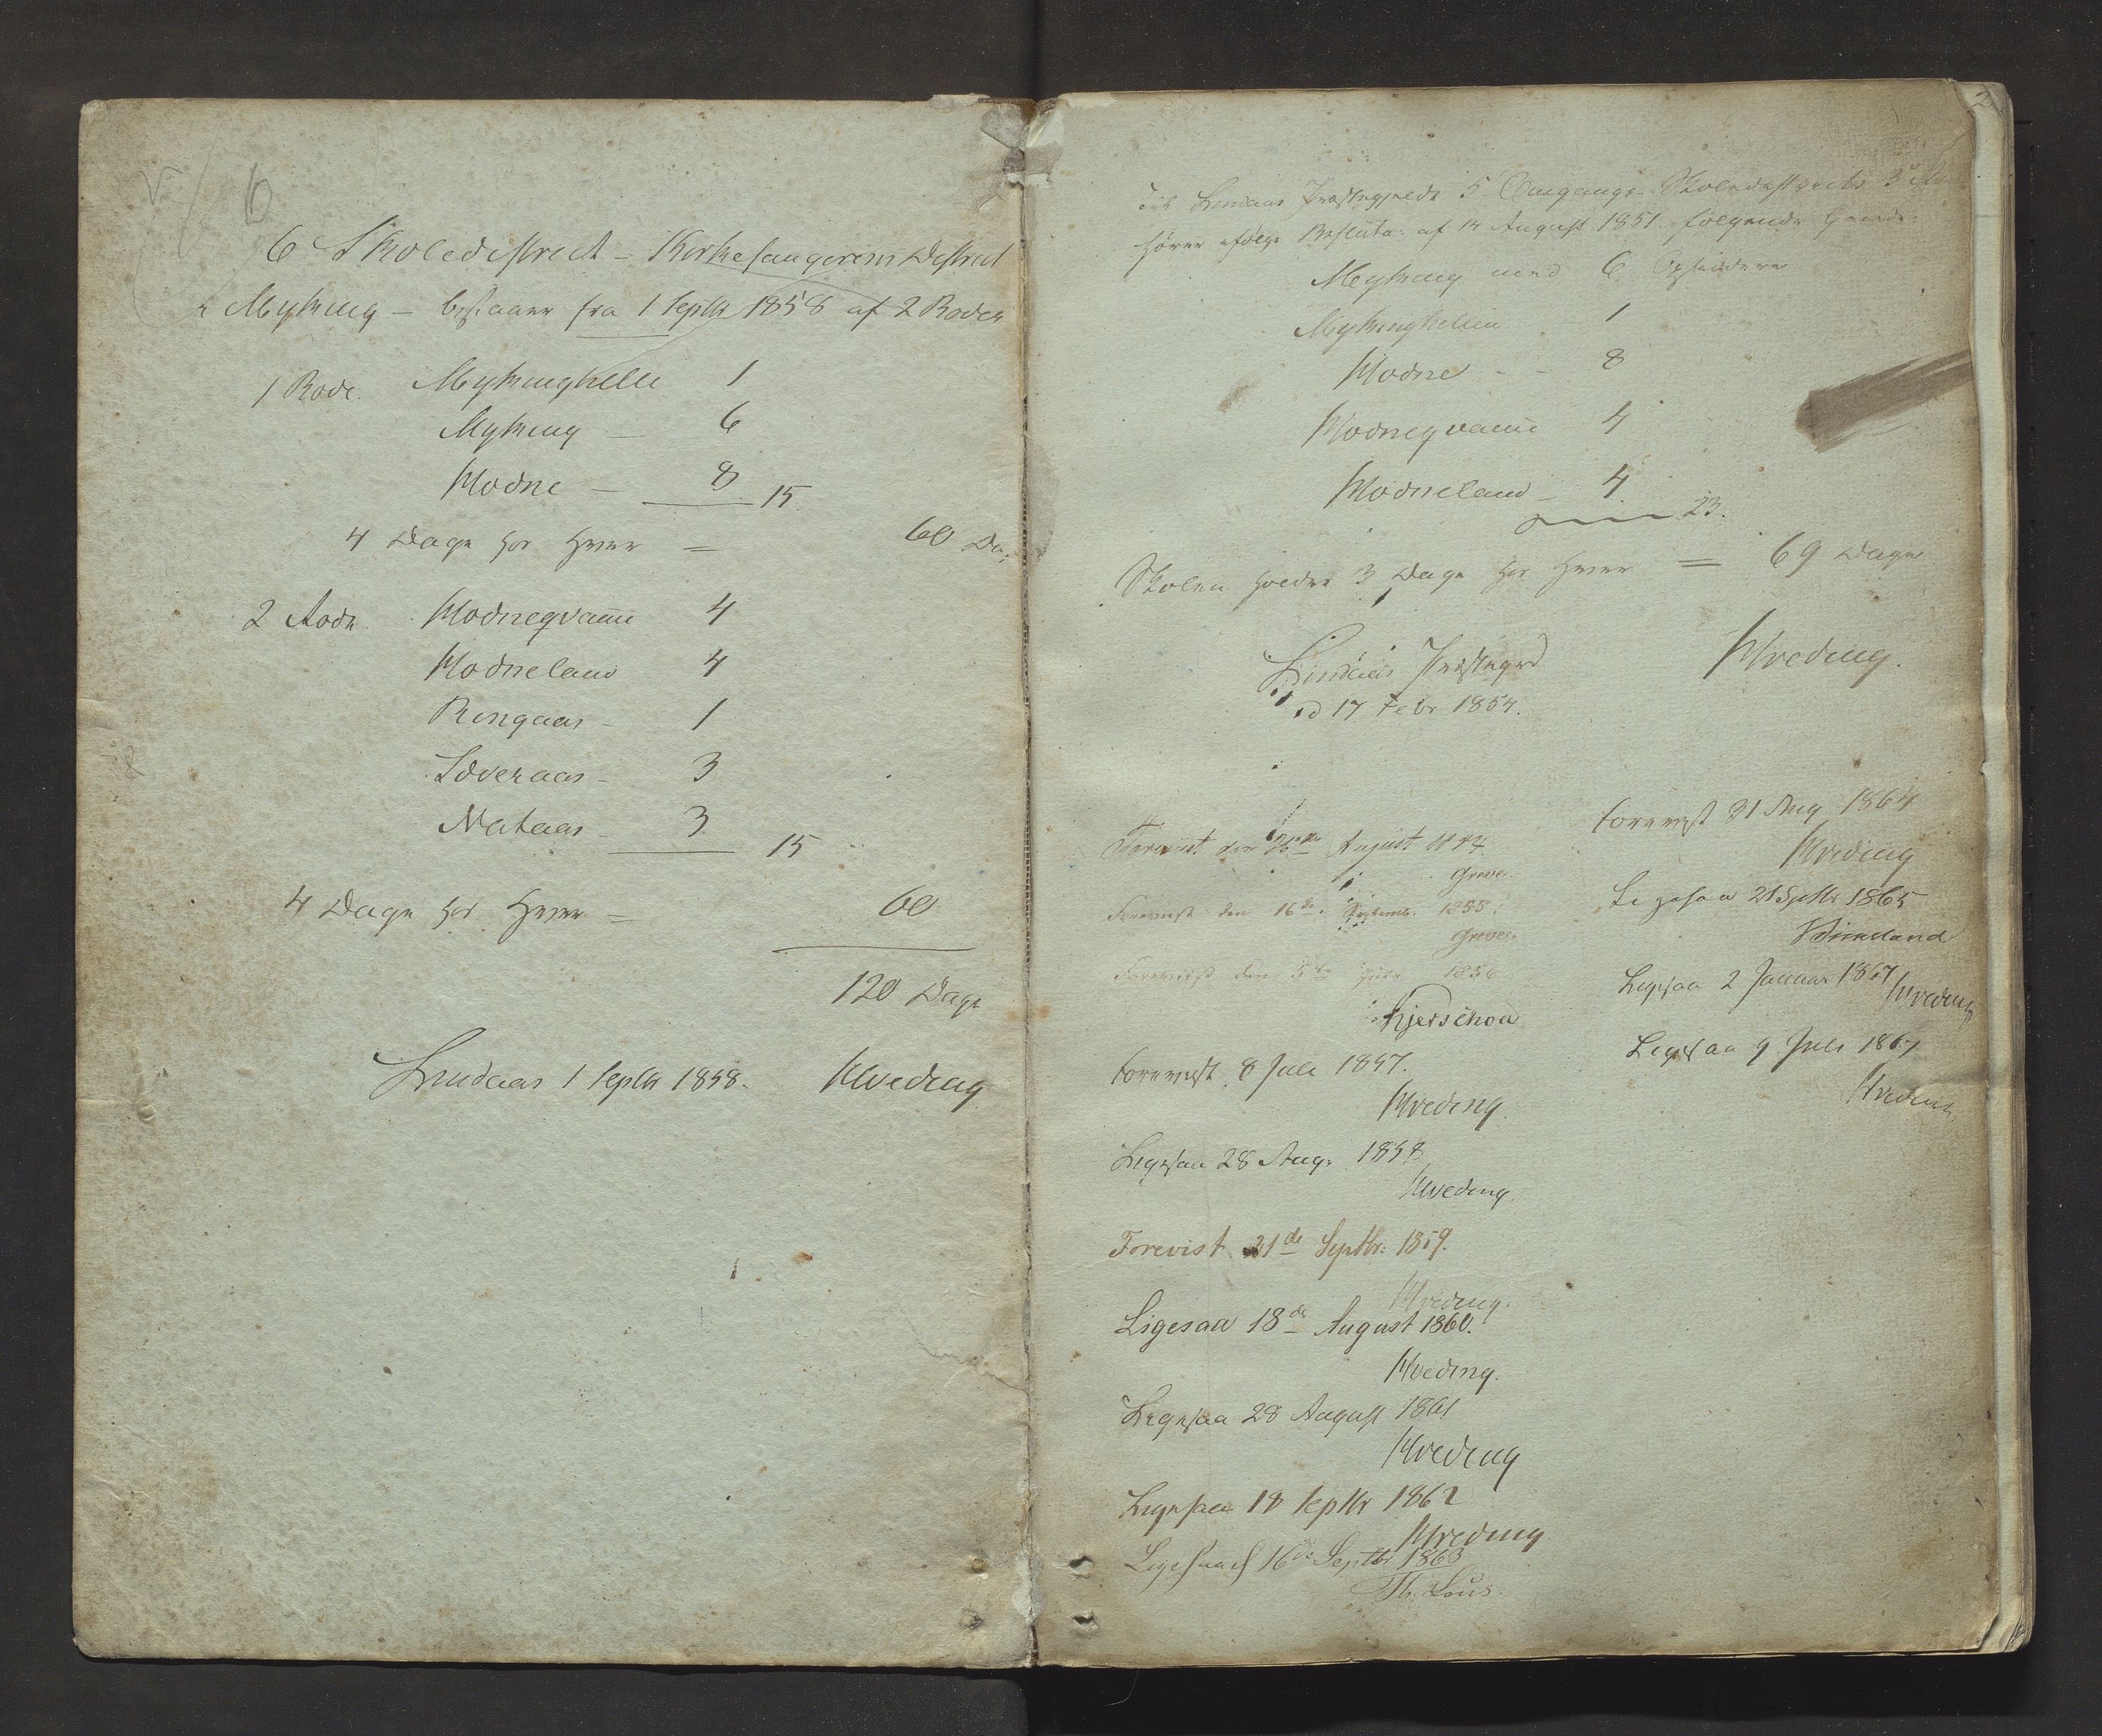 6
6 Skoledistrict – Kirkesangerens District
Myking – bestaaer fra 1 Septbr 1858 af 2 Roder
1 Rode. Mykinghelle 1
Myking – 6
Modne – 8 15.
4 Dage hos Hver = 60 Da.
2 Rode. Modneqvamm 4
Modneland 4
Ringaas – 1
Søveraas – 3
Nataas – 3 15
4 Dage hos Hver = 60
120 Dage
Lindaas 1 Septbr 1858. Kveding
2
Til Lindaas Præstegjelds 5 Omgangs-Skoledistricts 3
hører ifølge Beslutn: af 14 August 1851 følgende Gaarde:
Myking med 6 Opsiddere
Mykinghellen 1
Modne – – 8
Modneqvamm – 4
Modneland – 4.
23.
Skolen holdes 3 Dage hos Hver = 69 Dage
Lindaas Præstegrd Kveding.
d 17 Febr 1854.
Forevist den August
Greve.
Forevist den 16de Septembr. 1855.
Greve.
Forevist den 5te Juli 1856
Kjerschow
Forevist 8 Juli 1857.
Kveding.
Ligesaa 28 Aug. 1858
Kveding.
Forevist 21de Septbr: 1859.
Kveding.
Ligesaa 18de August 1860.
Kveding.
Ligesaa 28 August 1861
Kveding
Ligesaa 18 Septbr 1862
Kveding
Ligesaa 16de Septbr 1863
Th. Lous.
Forevist 31 Aug 1864
Kveding
Ligesaa 21 Septbr 1865
Ligesaa 2 Januar 1867
Kveding
Ligesaa 9 Juli 1867
Kveding